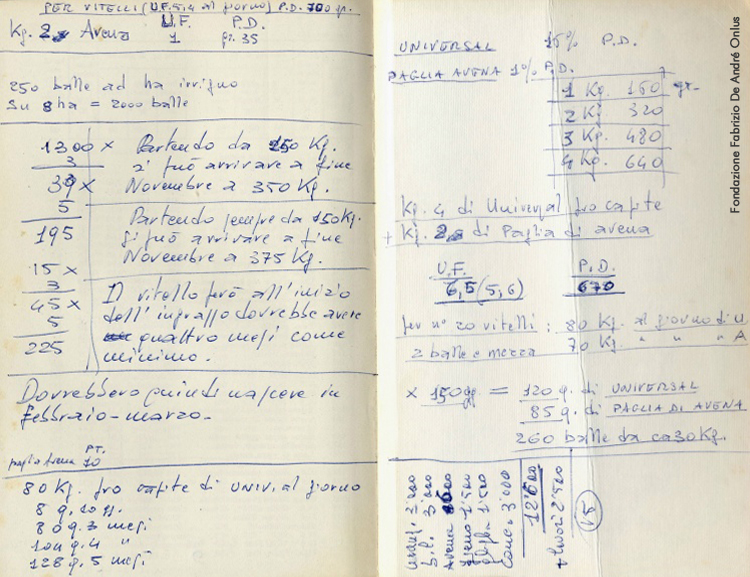 PER VITELLI (U.F. 5,4 al giorno) P.D. 700 gr.
Kg. 2 Avena U.F. 1 P.D. gr. 35
250 balle ad ha irriguo
Su 8 ha = 2000 balle
1300 x
3
39 x
5
195
15 x
3
45 x
5
225
Partendo da 150 Kg.
si può arrivare a fine
Novembre a 350 Kg.
Partendo sempre da 150 Kg.
si può arrivare a fine
Novembre a 375 Kg.
Il vitello però all'inizio
dell'ingrasso dovrebbe avere
quattro mesi come
minimo.
Dovrebbero quindi nascere in
Febbraio-marzo.
paglia Avena P.T. 10
80 Kg. pro capite di UNIV. al giorno
8 q. 10 gg.
80 q. 3 mesi
104 q. 4 "
128 q. 5 mesi
UNIVERSAL 15% P.D.
PAGLIA AVENA 1% P.D.
1 Kg. 160 gr.
2 Kg 320
3 Kg. 480
4 Kg. 640
Kg. 4 di Universal pro capite
+ Kg. 2 di Paglia di avena
U.F. P.D.
6,5 (5,6) 670
per n° 20 vitelli: 80 Kg. al giorno di U
2 balle e mezza 70 Kg. " " " A
x 150 gg = 120 q. di UNIVERSAL
85 q. di PAGLIA DI AVENA
260 balle da ca 30 Kg.
3'000
Avena
fieno 1'500
paglia 1'500
conc. 3'000
12'600
+ 2'500
15
Fondazione Fabrizio De André Onlus